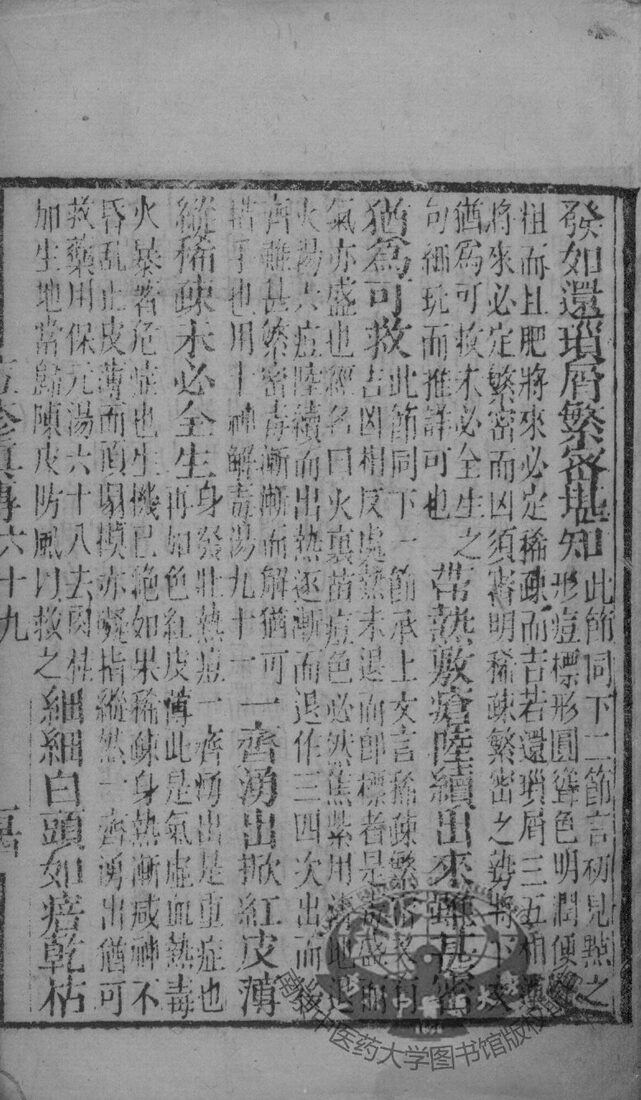 發如還瑣屑繁密堪知此節同下二節言初見點之
形痘標形圓聳色明潤便
粗而且肥將來必定稀疎而吉若還瑣屑三五相
將來必定繁密而凶須審明稀疎繁密之勢將下文
猶為可救未必全生之
句細玩而推詳可也 帶熱敷瘡陸續出來雖甚密
猶為可救此節同下一節承上文言稀疎繁密又有
吉凶相反處熱未退而即標者是毒盛而
氣亦盛也經名曰火裏苗痘色必然焦紫用
火湯六痘陸續而出熱逐漸而退作三四次出而後
齊雖甚繁密毒漸漸而解猶可 一齊湧出掀紅皮薄
措手也用十神解毒湯九十一
縱稀疎未必全生身發壯熱痘一齊湧出是重症也
再如色紅皮薄此是氣虛血熱毒
火暴著危症也生機已絶如果稀疎身熱漸減神不
昏亂止皮薄而頭塌摸亦礙指縱然一齊湧出猶可
救藥用保元湯六十八去肉桂
加生地當歸陳皮防風以救之 細細白頭如瘖乾枯
真傳六十九
南京中医药大学图书馆版权所有